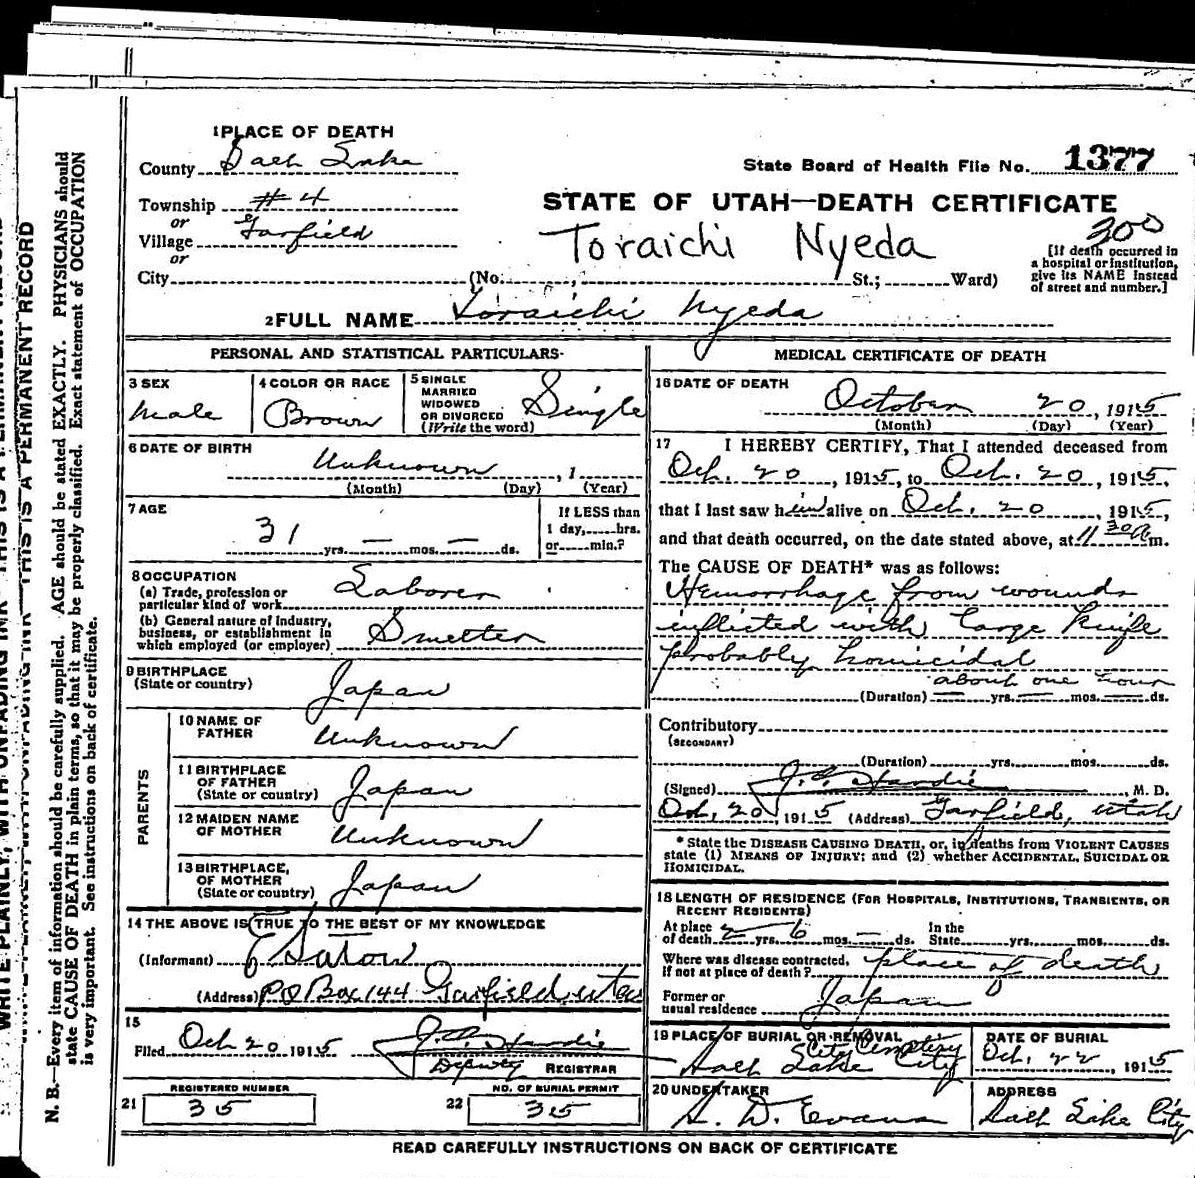 1 PLACE OF DEATH
County Salt Lake
State Board of Health File No. 1377
Township #4
or
Village Garfield
or
City (No. , St.; Ward)
STATE OF UTAH—DEATH CERTIFICATE
300
Toraichi Nyeda
[If death occurred in
a hospital or institution,
give its NAME instead
of street and number.]
2 FULL NAME Toraichi Nyeda
PERSONAL AND STATISTICAL PARTICULARS
3 SEX
Male
4 COLOR OR RACE
Brown
5 SINGLE
MARRIED
WIDOWED
OR DIVORCED
(Write the word)
Single
6 DATE OF BIRTH
Unknown , 1
(Month) (Day) (Year)
7 AGE
31 yrs. — mos. — ds.
If LESS than
1 day, hrs.
or min.?
8 OCCUPATION
(a) Trade, profession or
particular kind of work Laborer
(b) General nature of industry,
business, or establishment in
which employed (or employer) Smelter
9 BIRTHPLACE
(State or country) Japan
PARENTS
10 NAME OF
FATHER Unknown
11 BIRTHPLACE
OF FATHER
(State or country) Japan
12 MAIDEN NAME
OF MOTHER Unknown
13 BIRTHPLACE,
OF MOTHER
(State or country) Japan
14 THE ABOVE IS TRUE TO THE BEST OF MY KNOWLEDGE
(Informant) Satow
(Address) PO Box 144 Garfield, Utah
15
Filed Oct 20 1915 Hardie
Deputy REGISTRAR
REGISTERED NUMBER
21 35
NO. OF BURIAL PERMIT
22 35
MEDICAL CERTIFICATE OF DEATH
16 DATE OF DEATH
October 20, 1915
(Month) (Day) (Year)
17 I HEREBY CERTIFY, That I attended deceased from
Oct. 20, 1915, to Oct. 20, 1915,
that I last saw him alive on Oct. 20, 1915,
and that death occurred, on the date stated above, at 11 30 a m.
The CAUSE OF DEATH* was as follows:
Hemorrhage from wounds
inflicted with large knife
probably homicidal
about one hour
(Duration) — yrs. — mos. — ds.
Contributory
(SECONDARY)
(Duration) yrs. mos. ds.
(Signed) Hardie, M. D.
Oct. 20, 1915 (Address) Garfield, Utah
* State the DISEASE CAUSING DEATH, or, in deaths from VIOLENT CAUSES
state (1) MEANS OF INJURY; and (2) whether ACCIDENTAL, SUICIDAL OR
HOMICIDAL.
18 LENGTH OF RESIDENCE (FOR HOSPITALS, INSTITUTIONS, TRANSIENTS, OR
RECENT RESIDENTS)
At place
of death 2 yrs. 6 mos. — ds.
In the
State yrs. mos. ds.
Where was disease contracted,
if not at place of death? place of death
Former or
usual residence Japan
19 PLACE OF BURIAL OR REMOVAL
City Cemetery
Salt Lake City
DATE OF BURIAL
Oct. 22, 1915
20 UNDERTAKER
S. D. Evans
ADDRESS
Salt Lake City
READ CAREFULLY INSTRUCTIONS ON BACK OF CERTIFICATE
THIS IS A PERMANENT RECORD
WRITE PLAINLY, WITH UNFADING INK
N. B.—Every item of information should be carefully supplied. AGE should be stated EXACTLY. PHYSICIANS should
state CAUSE OF DEATH in plain terms, so that it may be properly classified. Exact statement of OCCUPATION
is very important. See instructions on back of certificate.